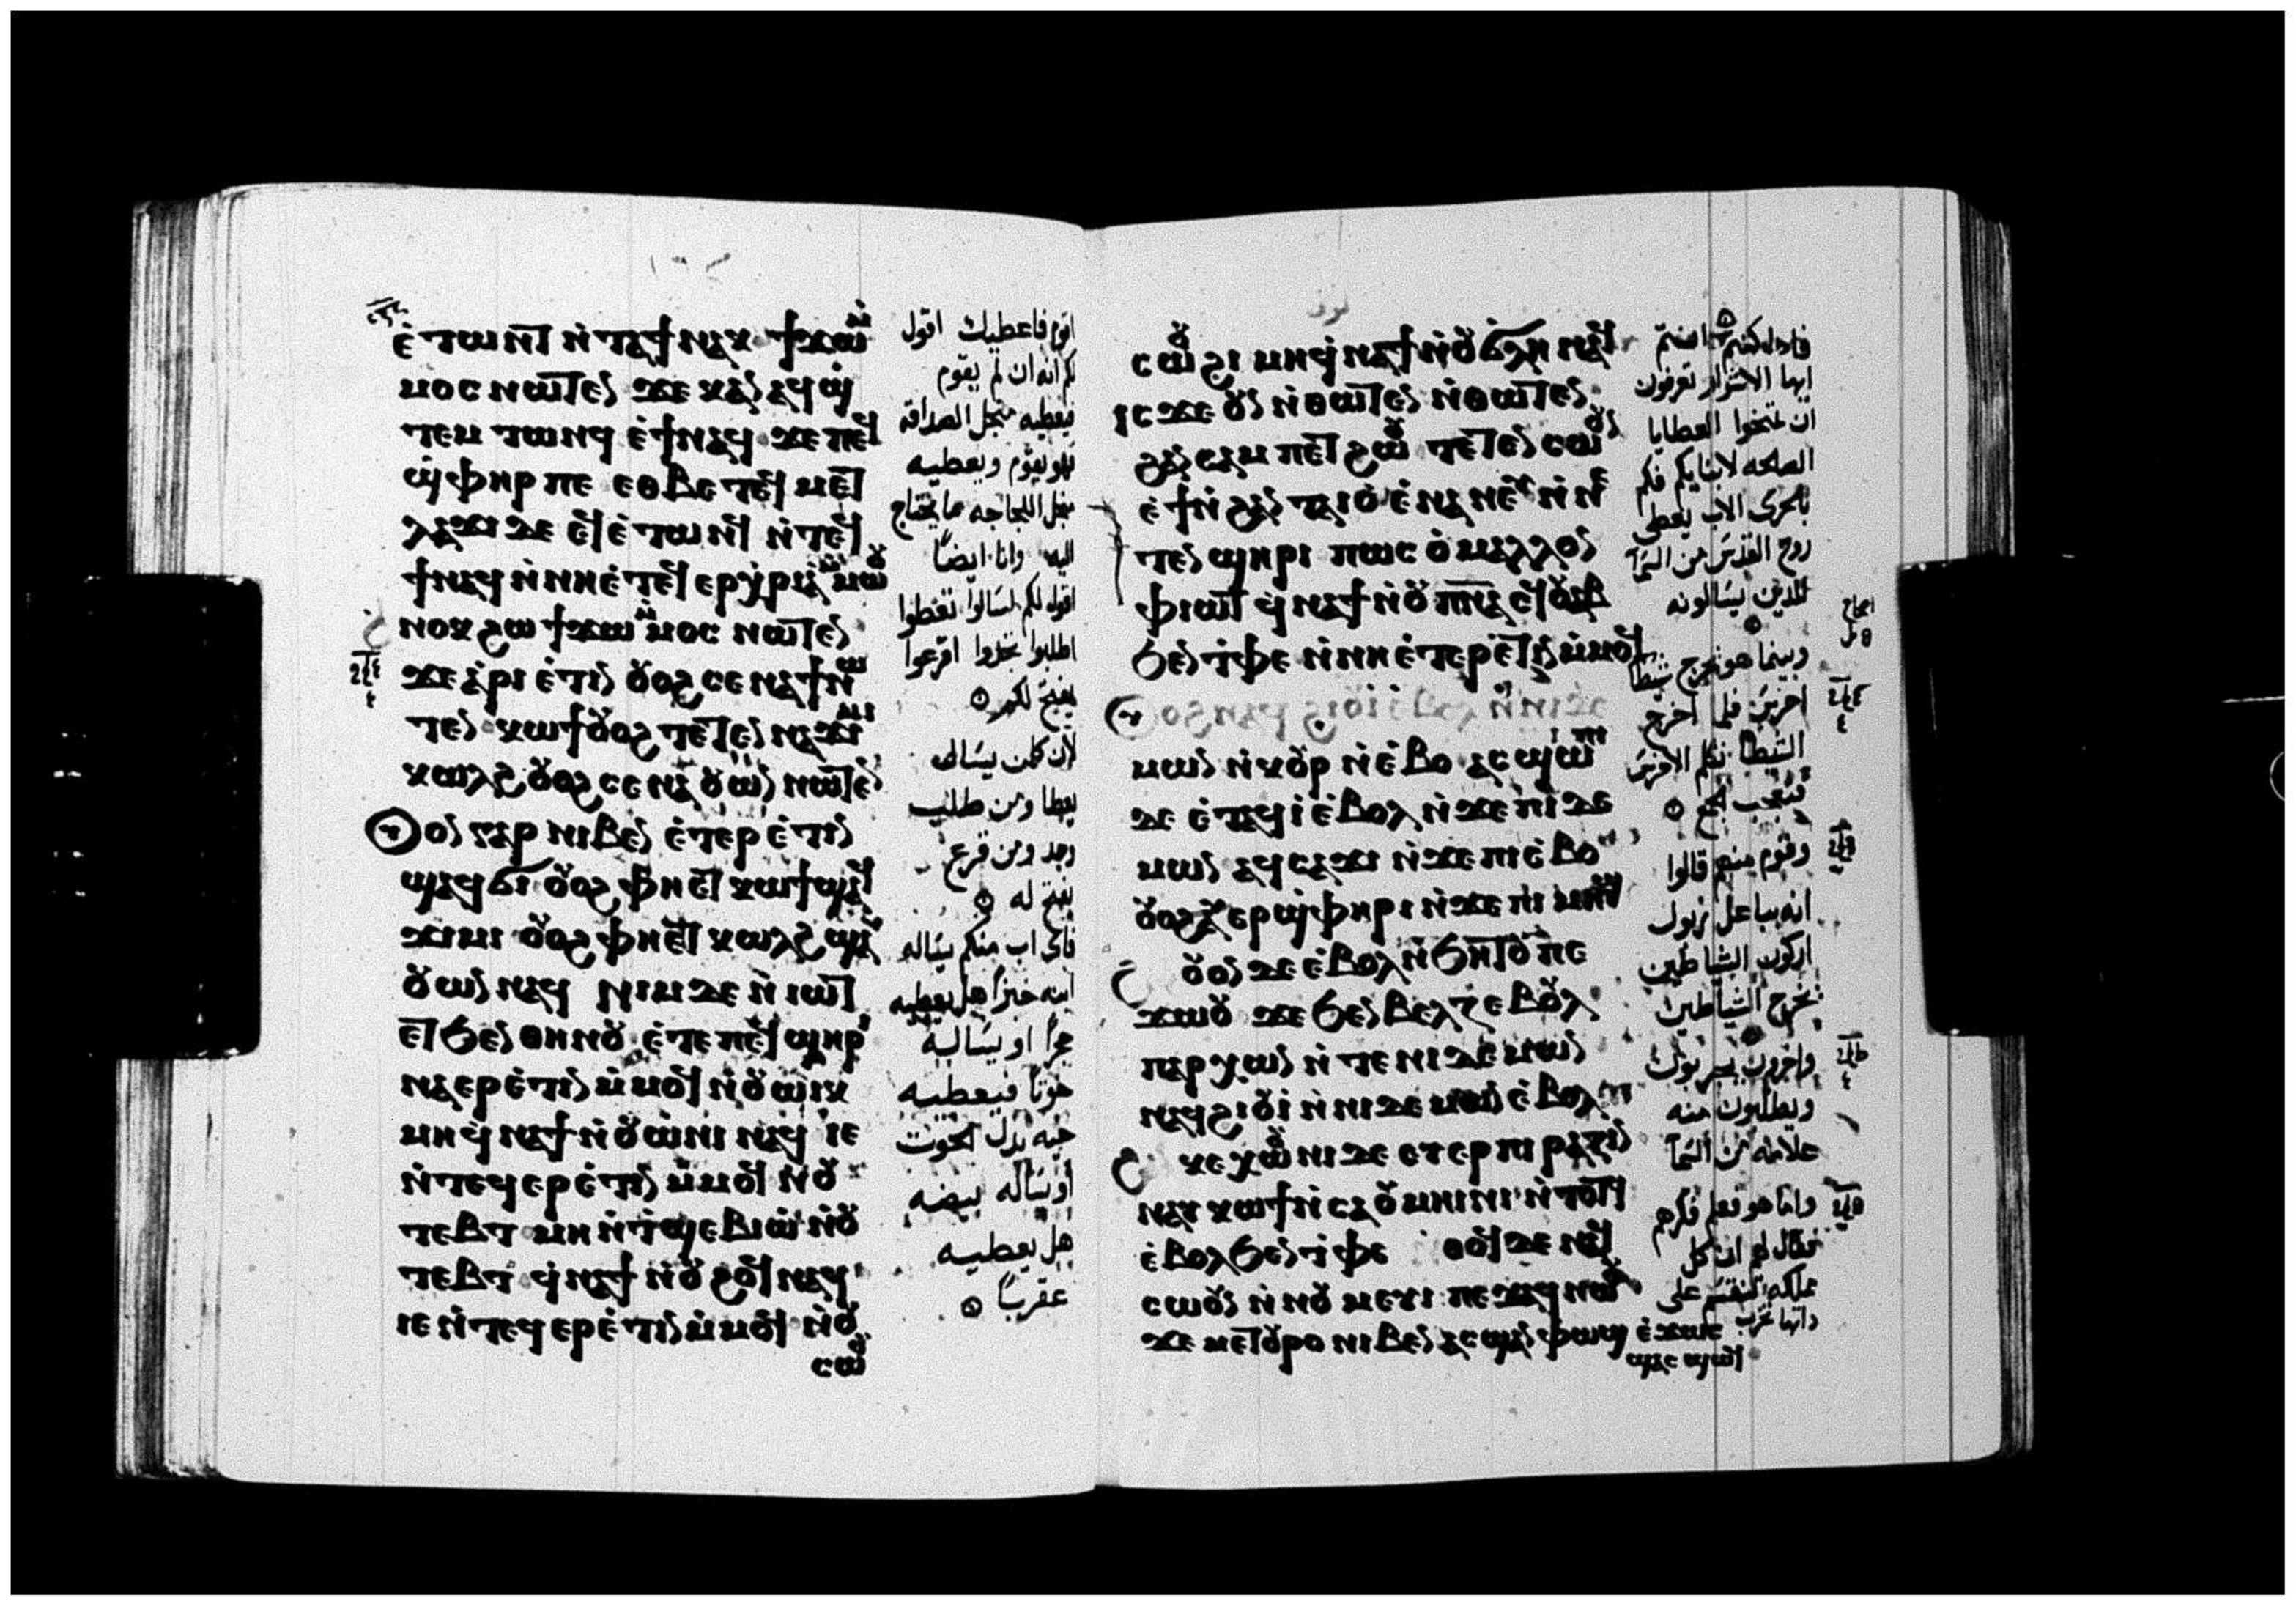 ⲉ̀ⲧⲱⲛϥ ⲛ̀ⲧⲁϯ ⲛⲁⲕ ϯϫⲱ
ⲙⲟⲥ ⲛⲱⲧⲉⲛ ϫⲉ ⲕⲁⲛ ⲁϥϣ̀
ⲧⲉⲙ ⲧⲱⲛϥ ⲉ̀ϯ ⲛⲁϥ ϫⲉ ⲡⲉϥ
ϣ̀ⲫⲏⲣ ⲡⲉ ⲉⲑⲃⲉ ⲧⲉϥⲙⲉⲧ
ϯ ⲛⲁϥ ⲛ̀ⲛⲏ ⲉ̀ⲧⲉϥⲉⲣⲭ̀ⲣⲓⲁ ⲙ̀ⲙⲱⲟⲩ
ⲁⲛⲟⲕ ϩⲱ ϯϫⲱ ⲙ̀ⲙⲟⲥ ⲛⲱⲧⲉⲛ
ϫⲉ ⲁ̀ⲣⲓ ⲉ̀ⲧⲓⲛ ⲟⲩⲟϩ ⲥⲉⲛⲁϯ ⲛⲱ
ⲧⲉⲛ ⲕⲱϯ ⲟⲩⲟϩ ⲧⲉⲧⲉⲛⲛⲁϫⲓⲙⲓ
ⲕⲱⲗϩ ⲟⲩⲟϩ ⲥⲉⲛⲁⲟⲩⲱⲛ ⲛⲱⲧⲉⲛ
ⲟⲛ ⲅⲁⲣ ⲛⲓⲃⲉⲛ ⲉ̀ⲧⲉⲣⲉ̀ⲧⲓⲛ
ϣⲁϥϭⲓ ⲟⲩⲟϩ ⲫⲏⲉⲧ ⲕⲱϯ ϣⲁϥ
ϫⲓⲙⲓ ⲟⲩⲟϩ ⲫⲏⲉⲧ ⲕⲱⲗϩ ϣⲁⲩ
ⲟⲩⲱⲛ ⲛⲁϥ ⲛⲓⲙ ⲇⲉ ⲛ̀ⲓⲱⲧ
ⲉⲧϧⲉⲛ ⲑⲏⲛⲟⲩ ⲉ̀ⲧⲉ ⲡⲉϥϣⲏⲣⲓ
ⲛⲁⲉⲣⲉ̀ⲧⲓⲛ ⲙ̀ⲙⲟϥ ⲛ̀ⲟⲩⲱⲓⲕ
ⲙⲏ ϥ̀ⲛⲁϯ ⲛ̀ⲟⲩⲱ̀ⲛⲓ ⲛⲁϥ ⲓⲉ
ⲛ̀ⲧⲉϥⲉⲣⲉ̀ⲧⲓⲛ ⲙ̀ⲙⲟϥ ⲛ̀ⲟⲩ
ⲧⲉⲃⲧ ⲙⲏ ⲛ̀ⲧ̀ϣⲉⲃⲓⲱ̀ ⲛ̀ⲟⲩ
ⲧⲉⲃⲧ ϥ̀ⲛⲁϯ ⲛ̀ⲟⲩϩⲟϥ ⲛⲁϥ
ⲓⲉ ⲛ̀ⲧⲉϥⲉⲣⲉ̀ⲧⲓⲛ ⲙ̀ⲙⲟϥ ⲛ̀ⲟⲩ
ⲥⲱⲟⲩ
اقوم فاعطيك اقول
لكم انه ان لم يقوم
فيعطيه من اجل الصداقه
فهو يقوم ويعطيه
اليه وانا ايضاً
اقول لكم اسالوا تعطوا
اطلبوا تجدوا اقرعوا
يفتح لكم
لأن كلمن يسال
يعطا ومن طلب
وجد ومن قرع
يفتح له
فاى اب منكم يساله
ابنه خبزاً هل يعطيه
حجراً او يساله
حوتاً فيعطيه
حيه بدل الحوت
او يساله بيضه
هل يعطيه
عقرباً
ⲥⲱⲟⲩϩⲓ ⲙⲏ ϥ̀ⲛⲁϯ ⲛ̀ⲟⲩϭⲗⲏ ⲛⲁϥ
ⲓⲥϫⲉ ⲟⲩⲛ ⲛ̀ⲑⲱⲧⲉⲛ ⲛ̀ⲑⲱⲧⲉⲛ
ⲉ̀ϯ ⲛ̀ϩⲁⲛⲧⲁⲓⲟ̀ ⲉ̀ⲛⲁⲛⲉⲩ ⲛ̀ⲛⲉ
ⲧⲉⲛϣⲏⲣⲓ ⲡⲱⲥ ⲟ̀ ⲙⲁⲗⲗⲟⲛ
ⲫⲓⲱⲧ ϥ̀ⲛⲁϯ ⲛ̀ⲟⲩⲡⲛⲁ ⲉϥⲟⲩⲁⲃ
ϧⲉⲛ ⲧ̀ⲫⲉ ⲛ̀ⲛⲏ ⲉ̀ⲧⲉⲣⲉ̀ⲧⲓⲛ ⲙ̀ⲙⲟϥ
ⲙⲱⲛ ⲛ̀ⲕⲟⲩⲣ ⲛ̀ⲉ̀ⲃⲟ ⲁⲥϣⲱⲡⲓ
ⲇⲉ ⲉ̀ⲧⲁϥⲓ̀ ⲉ̀ⲃⲟⲗ ⲛ̀ϫⲉ ⲡⲓⲇⲉ
ⲙⲱⲛ ⲁϥⲥⲁϫⲓ ⲛ̀ϫⲉ ⲡⲓⲉ̀ⲃⲟ
ⲟⲩⲟϩ ⲁⲩⲉⲣϣ̀ⲫⲏⲣⲓ ⲛ̀ϫⲉ ⲛⲓⲙⲏϣ
ⲟⲩⲟⲛ ⲇⲉ ⲉ̀ⲃⲟⲗ ⲛ̀ϧⲏⲧⲟⲩ ⲡⲉ
ϫⲱⲟⲩ ϫⲉ ϧⲉⲛ ⲃⲉⲗⲍⲉⲃⲟⲩⲗ
ⲡⲁⲣⲭⲱⲛ ⲛ̀ⲧⲉ ⲛⲓⲇⲉⲙⲱⲛ
ⲛⲁϥϩⲓⲟⲩⲓ̀ ⲛ̀ⲛⲓⲇⲉⲙⲱⲛ ⲉ̀ⲃⲟⲗ
ⲕⲉⲭⲱⲟⲩⲛⲓ ⲇⲉ ⲉⲩⲉⲣⲡⲓⲣⲁⲍⲓⲛ
ⲛⲁⲩⲕⲱϯ ⲛ̀ⲥⲁ ⲟⲩⲙⲏⲓⲛⲓ ⲛ̀ⲧⲟⲧϥ
ⲉ̀ⲃⲟⲗ ϧⲉⲛ ⲧ̀ⲫⲉ ⲑⲟϥ ⲇⲉ ⲛⲁϥ
ⲥⲱⲟⲩⲛ ⲛ̀ⲛⲟⲩⲙⲉⲩⲓ ⲡⲉϫⲁϥ ⲛⲱⲟⲩ
ϫⲉ ⲙⲉⲧⲟⲩⲣⲟ ⲛⲓⲃⲉⲛ ⲁⲥϣⲁⲛⲫⲱϣ ⲉ̀ϫⲱⲥ
ϣⲁⲥϣⲱϥ
فاذا كنتم انتم
ايها الاشرار تعرفون
ان تمنحوا العطايا
الصالحه لابنايكم فكم
بالحرى الاب يعطى
روح القدس من السما
للذين يسالونه
وبينما هو يخرج شيطا
اخرس فلما اخرج
الشيطا تكلم الاخرس
فتعجب الجمع
وقوم منهم قالوا
انه بباعل زبول
اركون الشياطين
يخرج الشياطين
واخرون يجربونه
ويطلبون منه
علامه من السما
واما هو فعلم فكرهم
فقال لهم ان كل
مملكه تنقسم على
ذاتها تخرب